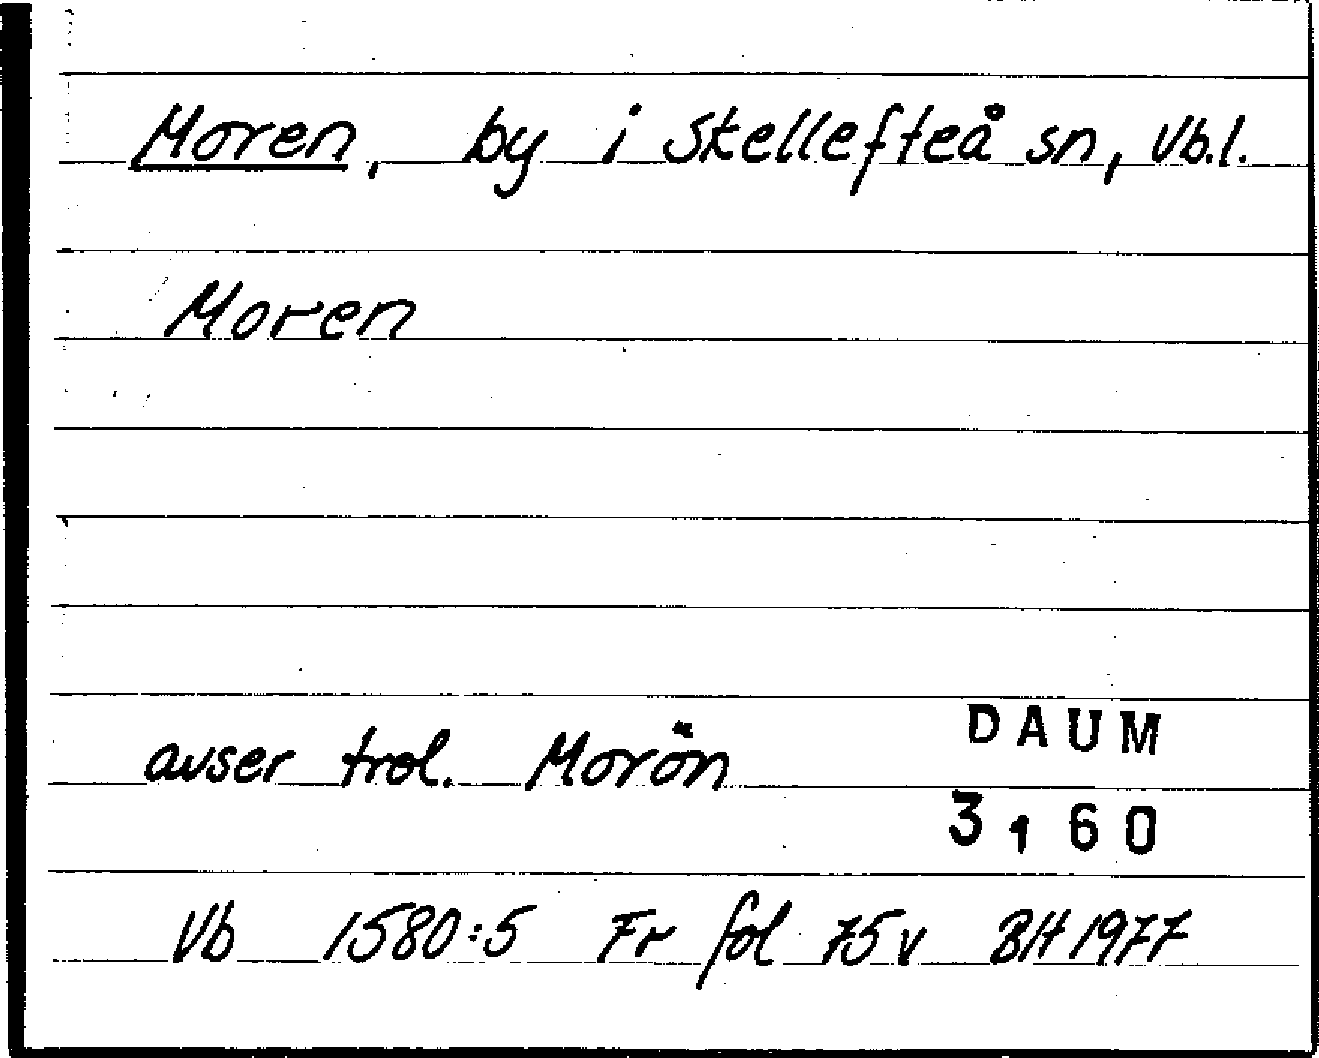 Moren, by i Skellefteå sn, Vb.l.
Moren
avser trol. Morön
DAUM
3160
Vb 1580:5 Fr fol 75v BH 1977